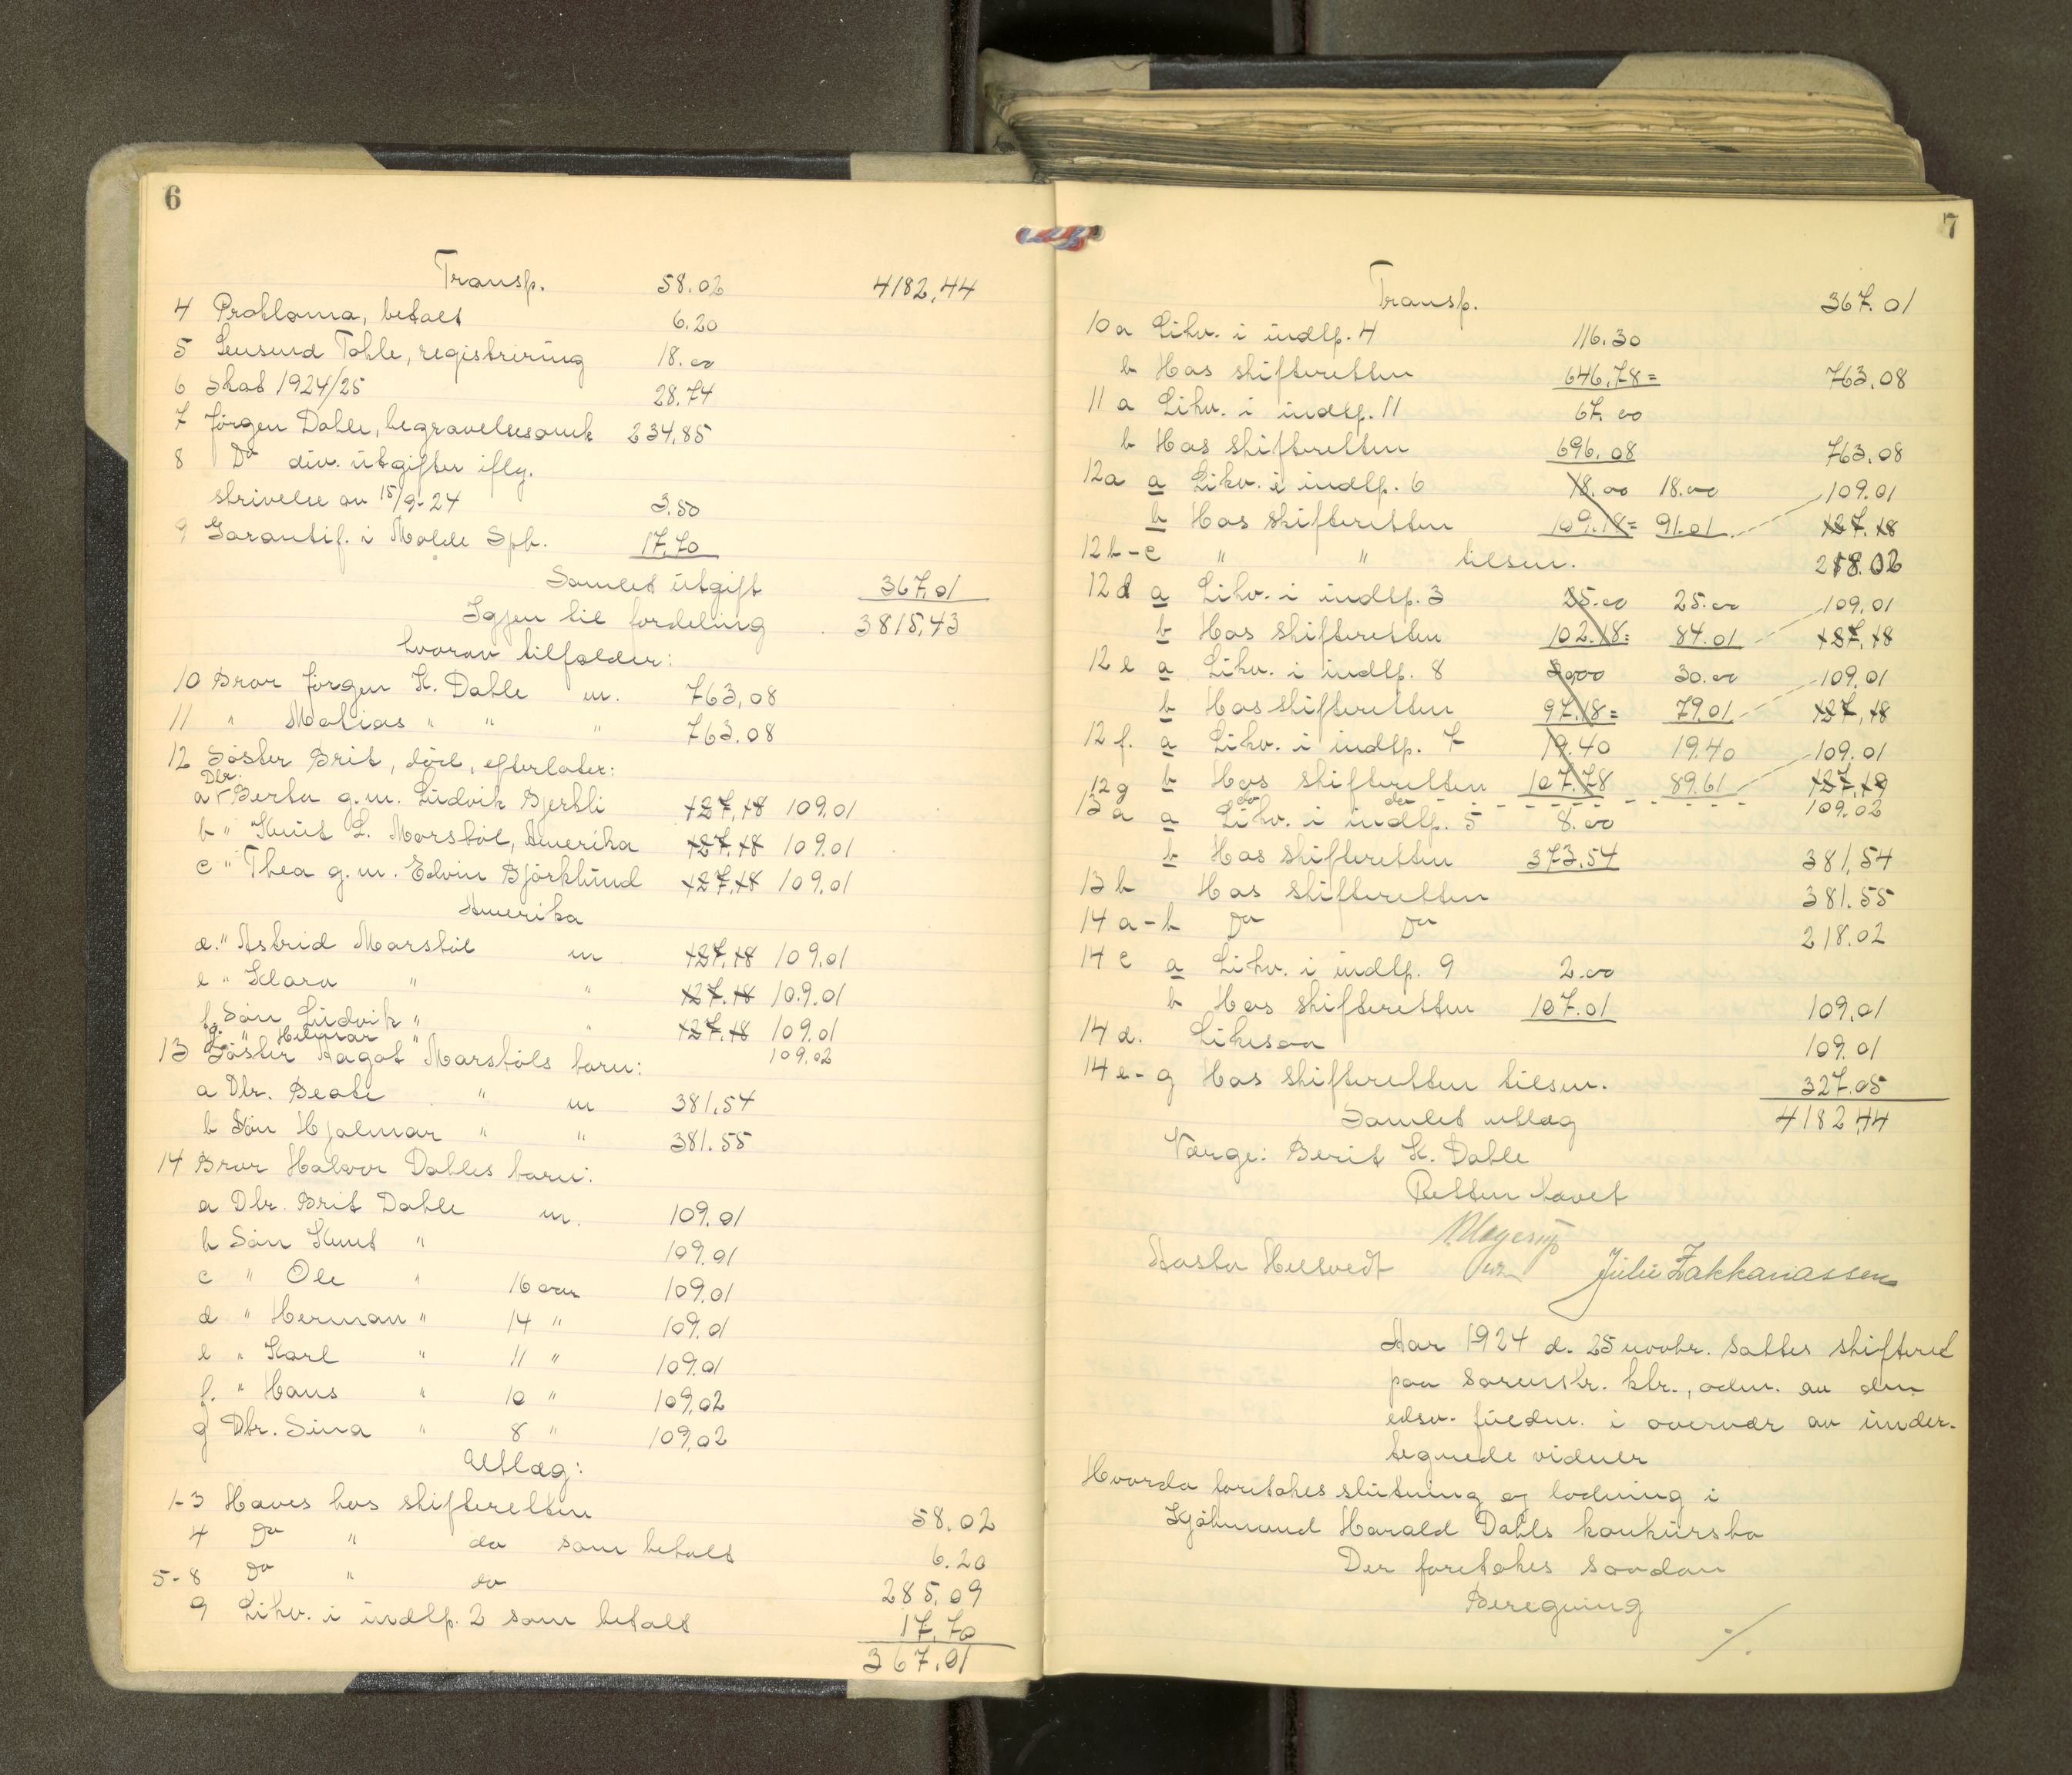 6
Transp. 58.02 4182,44
4 Proklama, betalt 6.20
5 Lensmd Tohle, registrering 18.00
6 Skat 1924/25 28.74
7 Jörgen Dahle, begravelsesomk 234,85
8 Do div. utgifter iflg.
skrivelse av 15/9-24 3.50
9 Garantif. i Molde Spb. 17,70
Samlet utgift 367,01
Igjen til fordeling 3815,43
hvorav tilfalder:
10 Bror Jörgen K. Dahle m. 763,08
11 " Matias " " " 763.08
12 Söster Brit, död, efterlater:
Dtr.
a Berta g.m. Ludvik Bjerkli 127,18 109,01
b " Knut L. Marstöl, Amerika 127,18 109.01
c " Thea g.m. Edvin Björklund 127,18 109,01
Amerika
d. " Astrid Marstöl m 127,18 109,01
e " Klara " " 127.18 109.01
f. Sön Ludvik " " 127.18 109.01
g. " Hilmar 109.02
13 Söster Aagot Marstöls barn:
a Dtr. Beate " m 381,54
b Sön Hjalmar " " 381.55
14 Bror Halvor Dahles barn:
a Dtr. Brit Dahle m. 109.01
b Sön Knut " 109.01
c " Ole " 16 aar 109.01
d " Herman " 14 " 109.01
e " Karl " 11 " 109.01
f. " Hans " 10 " 109,02
g Dtr. Sina " 8 " 109,02
Utlæg:
1-3 Haves hos skifteretten 58.02
4 Do " do som betalt 6.20
5-8 Do " do 285,09
9 Likv. i indlp. 2 som betalt 17,70
367.01
7
Transp. 367.01
10 a Likv. i indlp. 4 116.30
b Hos skifteretten 646,78= 763.08
11 a Likv. i indlp. 11 67.00
b Hos skifteretten 696.08 763.08
12a a Likv. i indlp. 6 18.00 18.00 109.01
b Hos skifteretten 109.18= 91.01 127,18
12 b-c " " tilsm. 218.02
12 d a Likv. i indlp. 3 25.00 25.00 109.01
b Hos skifteretten 102.18= 84.01 127,18
12 e a Likv. i indlp. 8 30,00 30.00 109.01
b Hos skifteretten 97.18= 79.01 127,18
12 f. a Likv. i indlp. 7 19.40 19.40 109.01
b Hos skifteretten 107.78 89.61 127,19
12 g do do 109.02
13 a a Likv. i indlp. 5 8.00
b Hos skifteretten 373,54 381,54
13 b Hos skifteretten 381.55
14 a-b Do Do 218.02
14 c a Likv. i indlp. 9 2.00
b Hos skifteretten 107.01 109,01
14 d. Likesaa 109.01
14 e-g Hos skifteretten tilsm. 327.05
Samlet utlæg 4182,44
Værge: Berit K. Dahle
Retten hævet
Aasta Helsvedt Julie Zakkariassen
Aar 1924 d. 25 novbr. sattes skifteret
paa sorenskr. ktr., adm. av den
edsv. fuldm. i overvær av under-
tegnede vidner
Hvorda foretokes slutning og lodning i
Kjöbmand Harald Dahls konkursbo
Der foretokes saadan
Beregning
./.